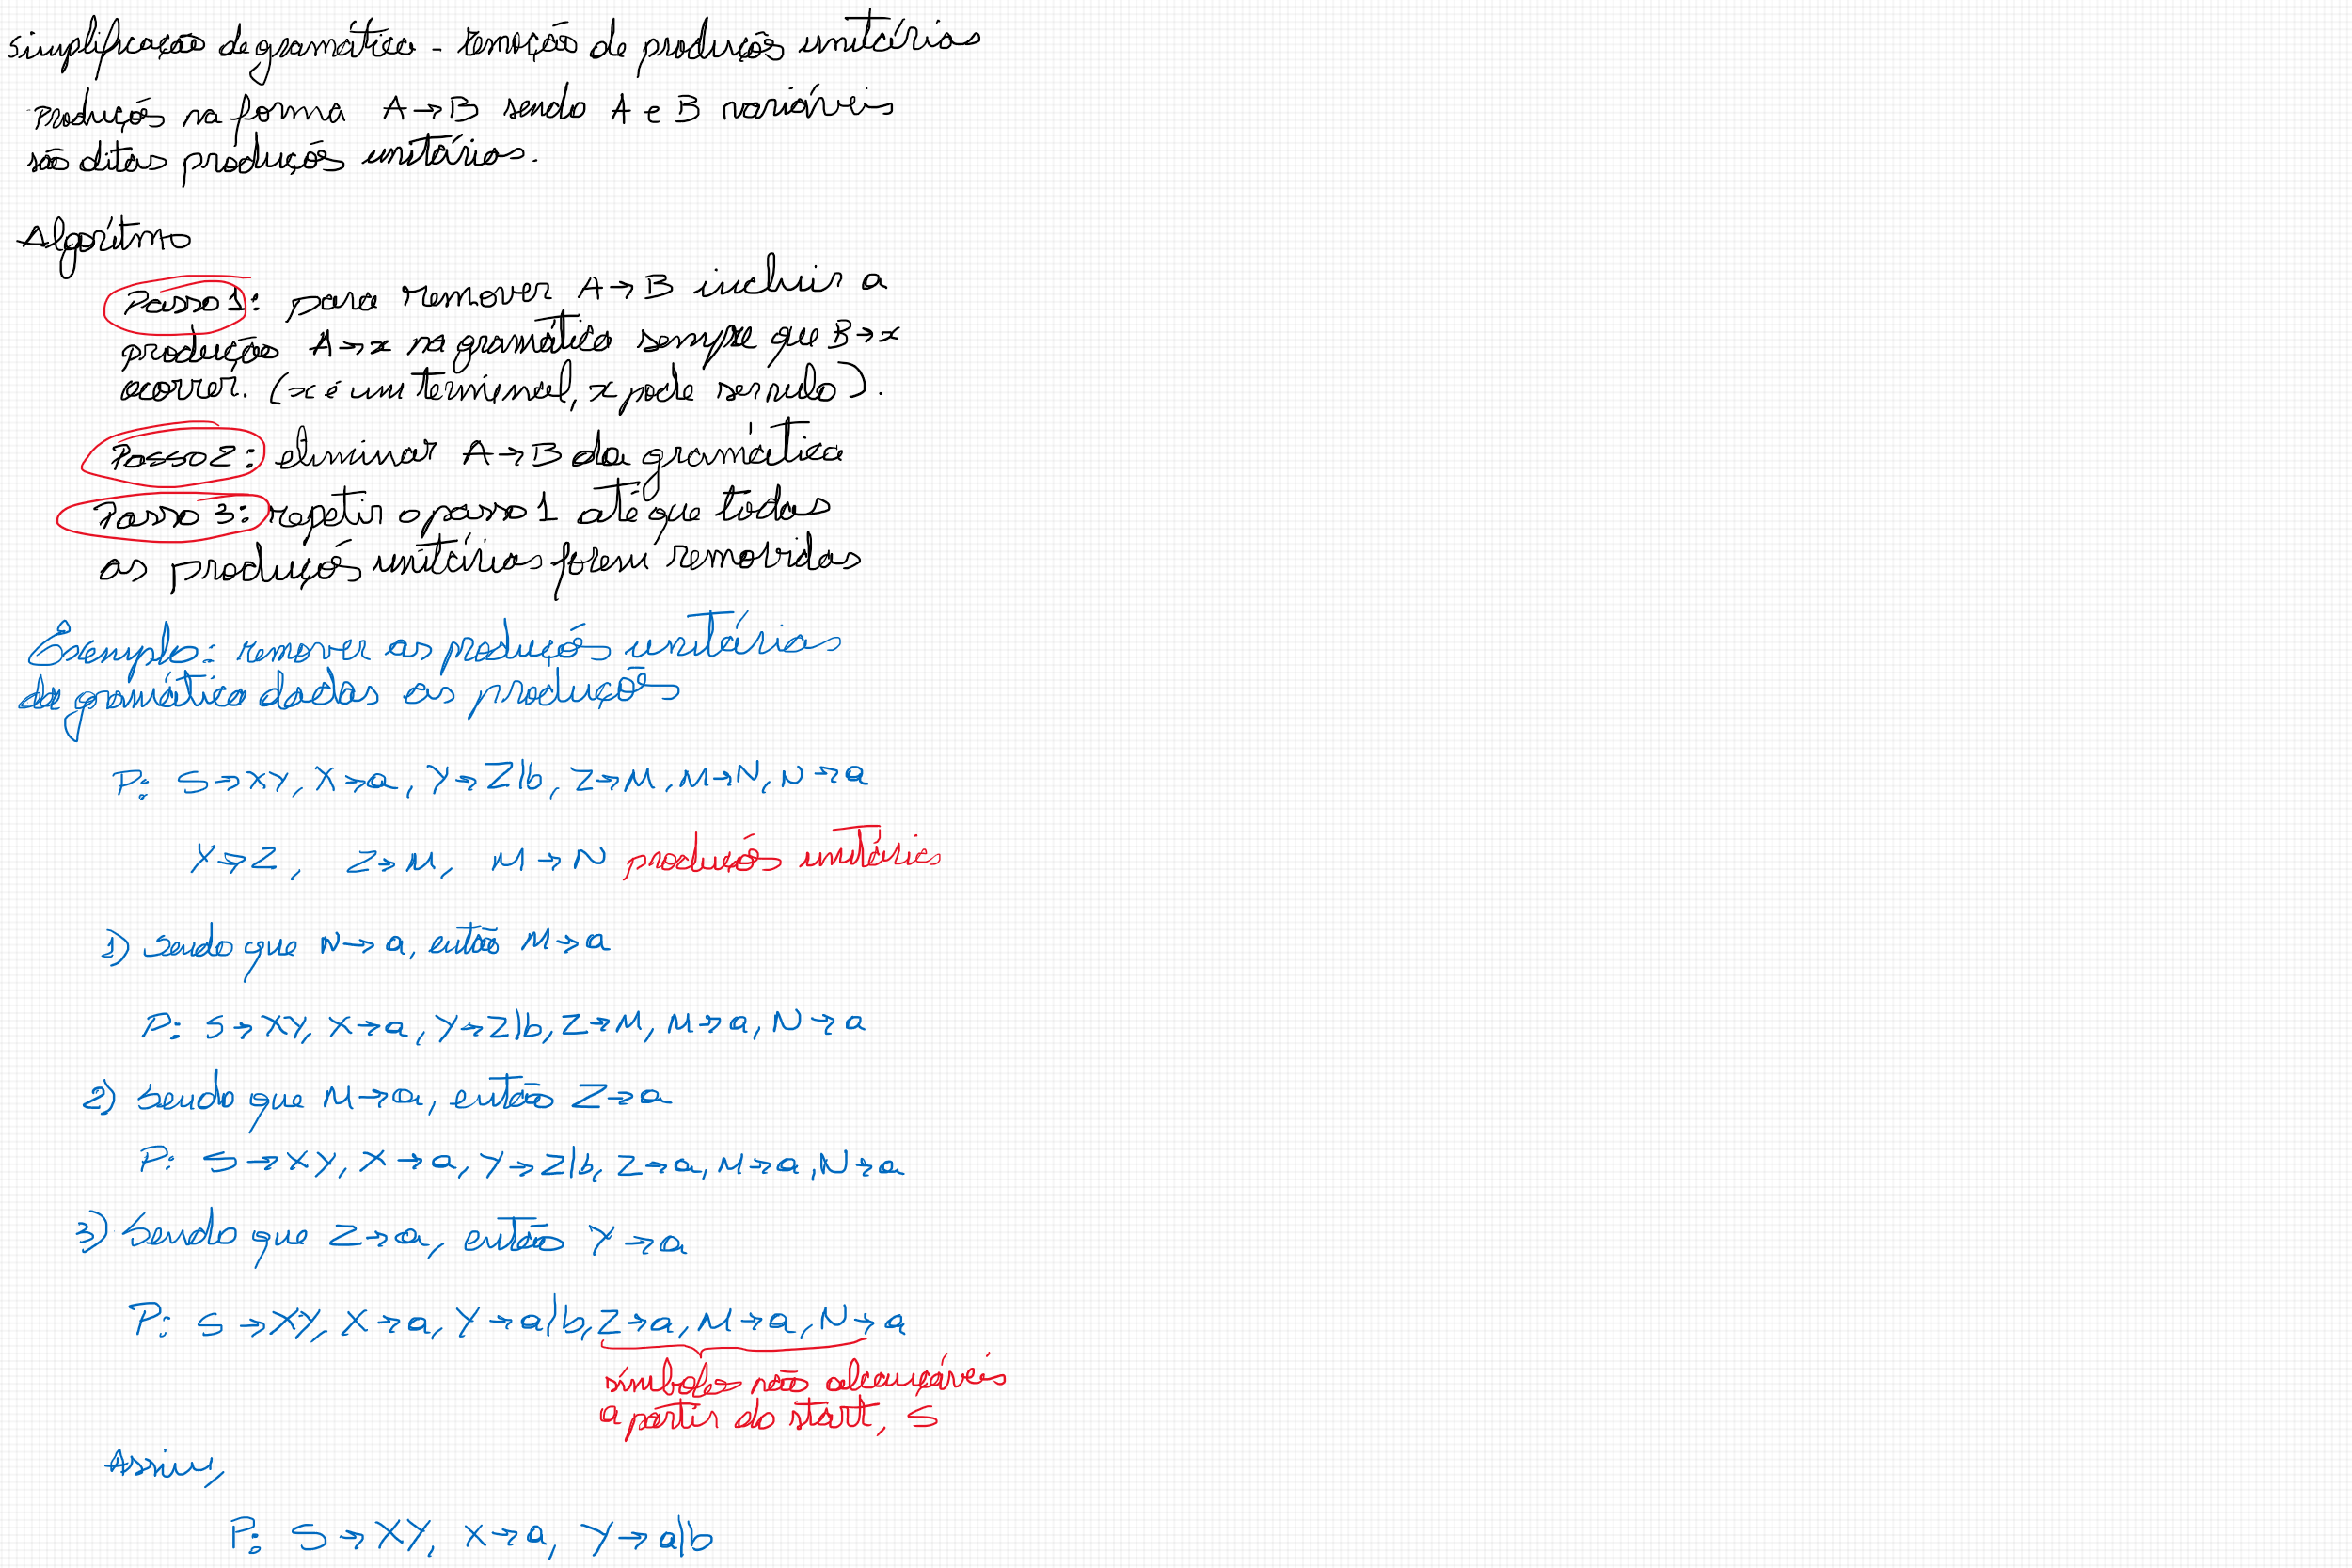 simplificação de gramática - remoção de produções unitárias
produções na forma A→B sendo A e B variáveis
são ditas produções unitárias.
Algorítmo
Passo 1: para remover A→B incluir a
produção A→x na gramática sempre que B→x
ocorrer. (x é um terminal, x pode ser nulo).
Passo 2: eliminar A→B da gramática
Passo 3: repetir o passo 1 até que todas
as produções unitárias forem removidas
Exemplo: remover as produções unitárias
da gramática dadas as produções
P: S→XY, X→a, Y→Z|b, Z→M, M→N, N→a
Y→Z, Z→M, M→N produções unitárias
1) Sendo que N→a, então M→a
P: S→XY, X→a, Y→Z|b, Z→M, M→a, N→a
2) Sendo que M→a, então Z→a
P: S→XY, X→a, Y→Z|b, Z→a, M→a, N→a
3) Sendo que Z→a, então Y→a
P: S→XY, X→a, Y→a|b, Z→a, M→a, N→a
símbolos não alcançáveis
a partir do start, S
Assim,
P: S→XY, X→a, Y→a|b